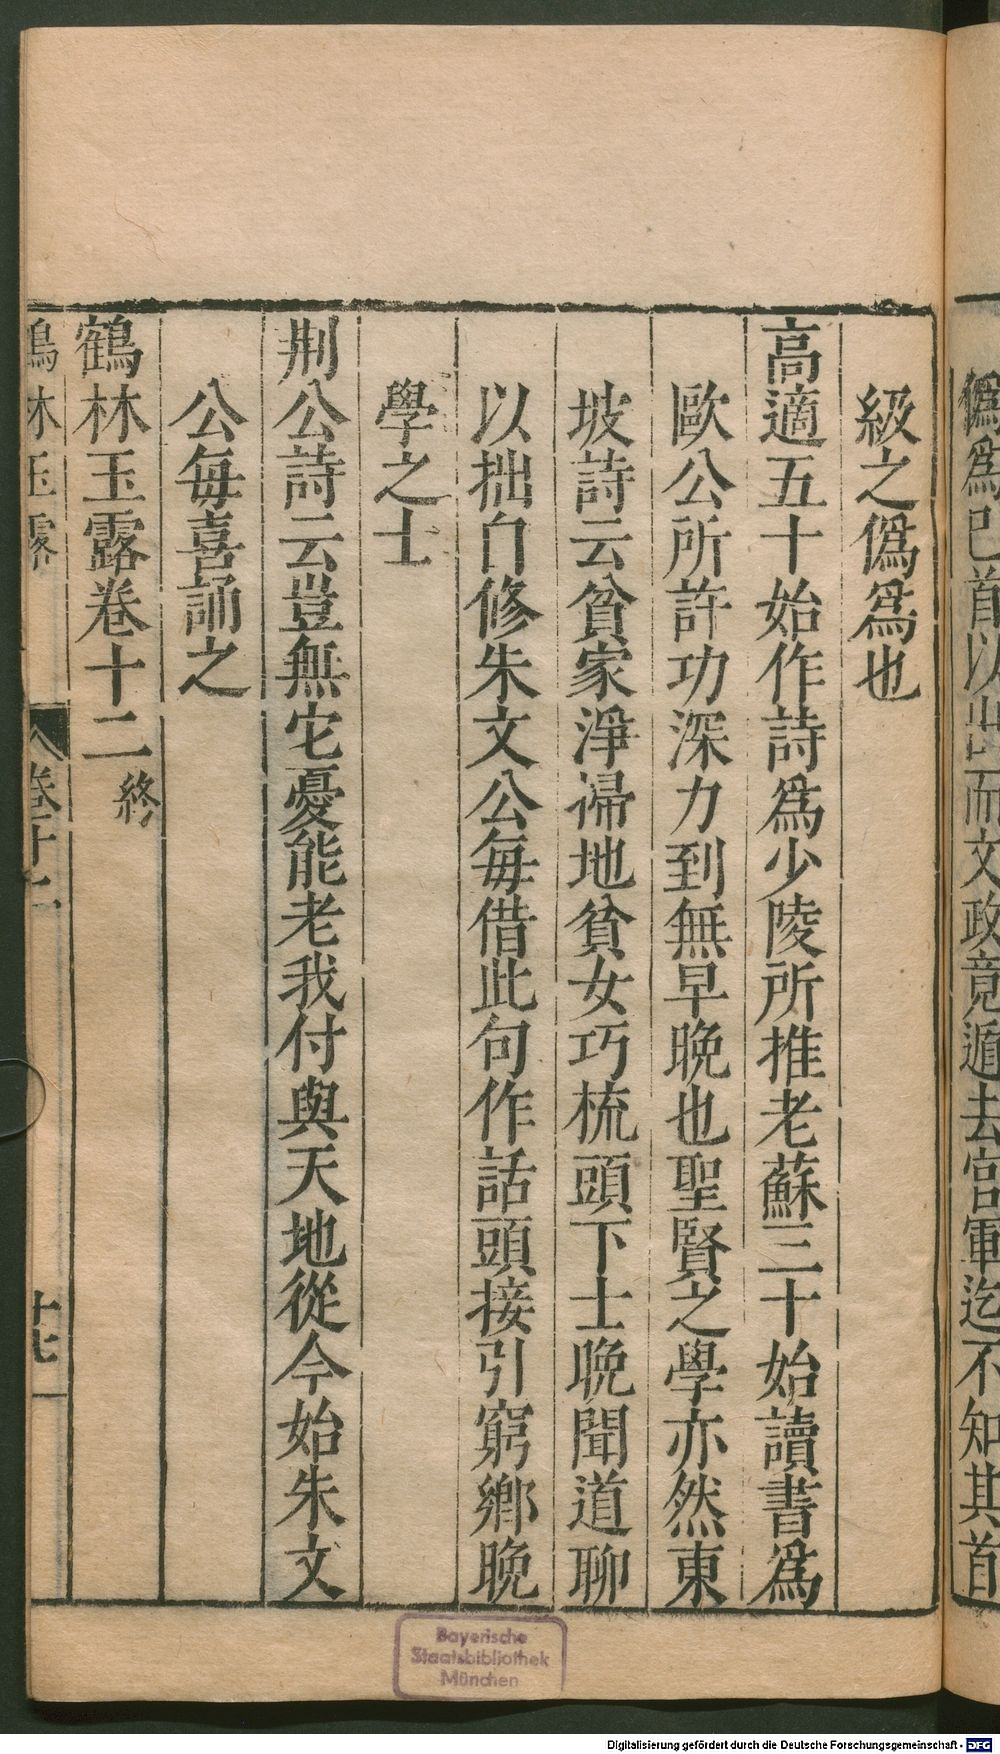 僞爲已首以出而文政竟遁去宮軍迄不知其首
級之僞爲也
高適五十始作詩爲少陵所推老蘇三十始讀書爲
歐公所許功深力到無早晚也聖賢之學亦然東
坡詩云貧家淨掃地貧女巧梳頭下士晚聞道聊
以拙自修朱文公每借此句作話頭接引窮鄉晚
學之士
荆公詩云豈無它憂能老我付與天地從今始朱文
公每喜誦之
鶴林玉露卷十二終
鶴林玉露 卷十二 十七
Bayerische
Staatsbibliothek
München
Digitalisierung gefördert durch die Deutsche Forschungsgemeinschaft - DFG